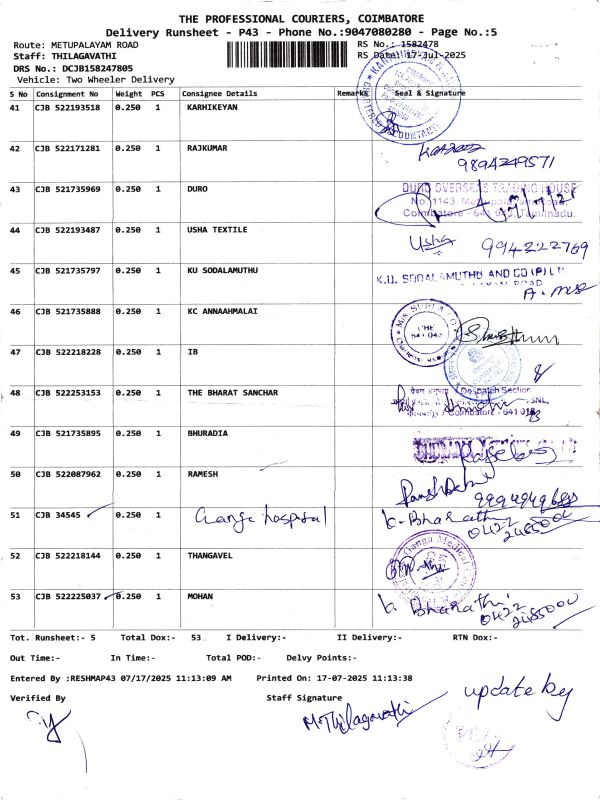 THE PROFESSIONAL COURIERS, COIMBATORE
Delivery Runsheet - P43 - Phone No.:9047080280 - Page No.:5
Route: METUPALAYAM ROAD RS No.: 1582478
Staff: THILAGAVATHI RS Date: 17-Jul-2025
DRS No.: DCJB158247805
Vehicle: Two Wheeler Delivery
S No Consignment No Weight PCS Consignee Details Remarks Seal & Signature
41 CJB 522193518 0.250 1 KARHIKEYAN
42 CJB 522171281 0.250 1 RAJKUMAR
9894349571
43 CJB 521735969 0.250 1 DURO DURO OVERSEAS TRADING HOUSE
No. 1143,
Coimbatore - 641 043, Tamilnadu.
44 CJB 522193487 0.250 1 USHA TEXTILE Usha 9943222769
45 CJB 521735797 0.250 1 KU SODALAMUTHU K.U. SODALAMUTHU AND CO (P) LT
ROAD
46 CJB 521735888 0.250 1 KC ANNAAHMALAI
CBE
641 043
47 CJB 522218228 0.250 1 IB
48 CJB 522253153 0.250 1 THE BHARAT SANCHAR Despatch Section
BSNL,
Coimbatore - 641 018
49 CJB 521735895 0.250 1 BHURADIA
50 CJB 522087962 0.250 1 RAMESH
51 CJB 34545 0.250 1 Ganga hospital b. Bharathi
0422
2485000
52 CJB 522218144 0.250 1 THANGAVEL Ganga Medical
53 CJB 522225037 0.250 1 MOHAN b. Bharathi
0422
2485000
Tot. Runsheet:- 5 Total Dox:- 53 I Delivery:- II Delivery:- RTN Dox:-
Out Time:- In Time:- Total POD:- Delvy Points:-
Entered By :RESHMAP43 07/17/2025 11:13:09 AM Printed On: 17-07-2025 11:13:38
Verified By Staff Signature update by
M. Thilagavathi